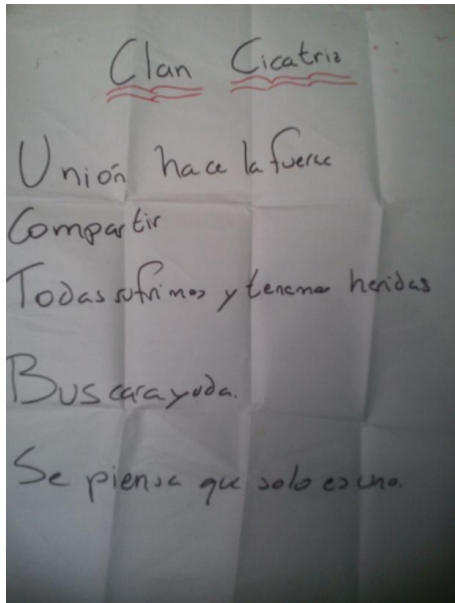 Clan Cicatriz
Unión hace la fuerza
Compartir
Todas sufrimos y tenemos heridas
Buscar ayuda.
Se piensa que solo es uno.